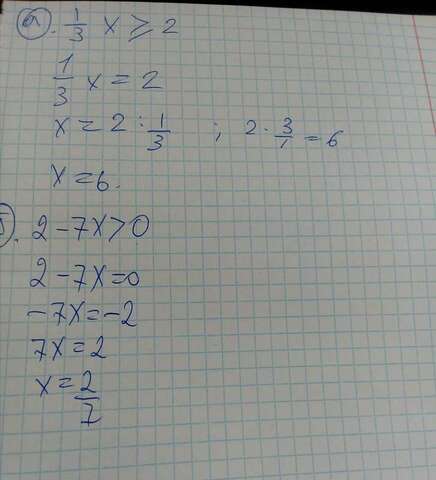 а). 1/3 x ≥ 2
1/3 x = 2
x = 2 : 1/3 ; 2 · 3/1 = 6
x = 6.
2 - 7x > 0
2 - 7x = 0
-7x = -2
7x = 2
x = 2/7